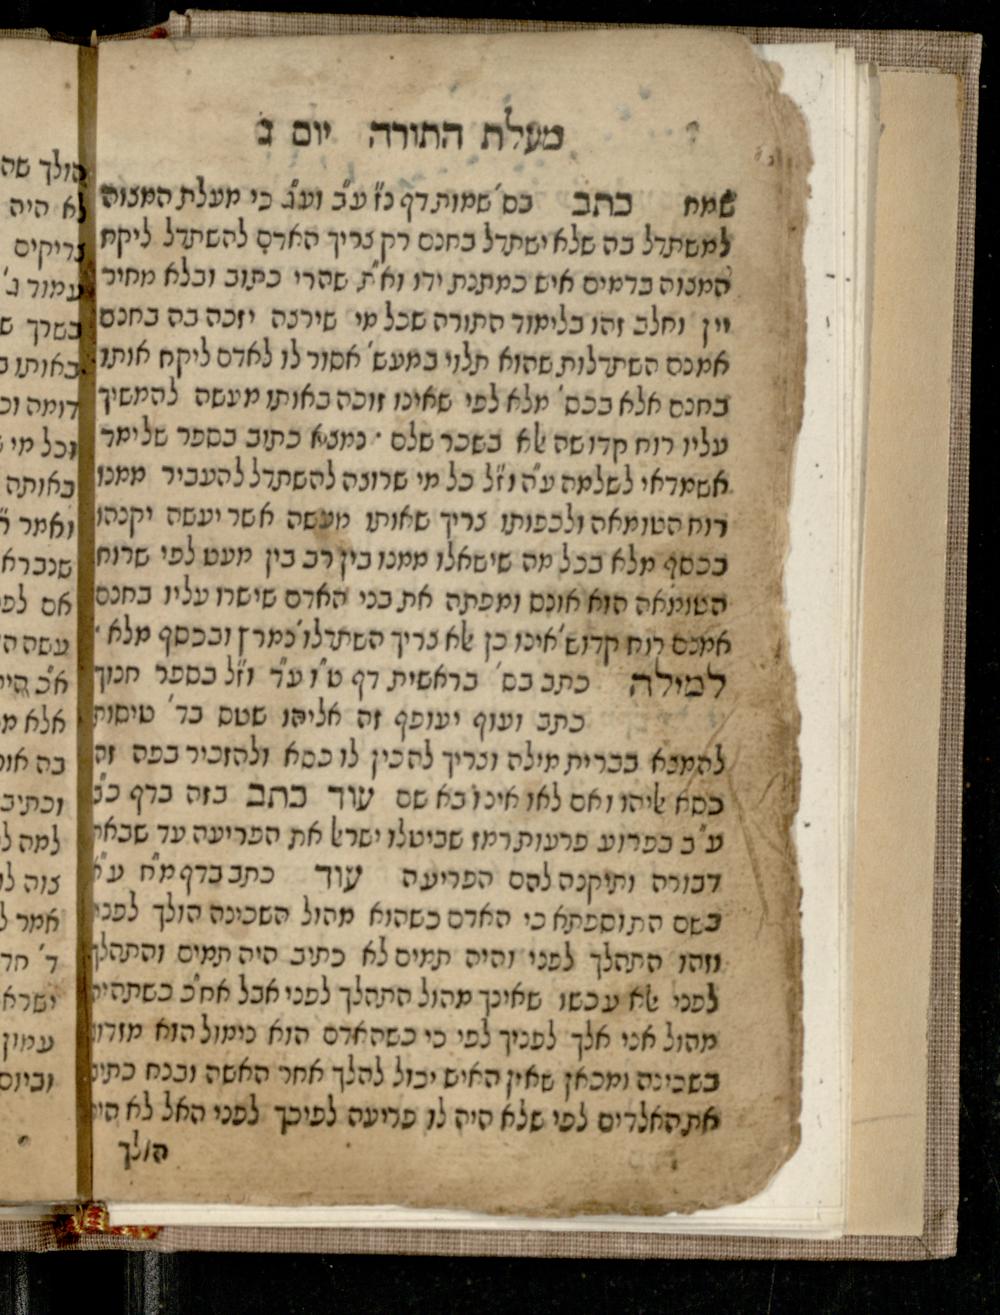 מעלת התורה יום ג
שמח כתב בס' שמות דף נ"ז ע"ב וע"ג כי מעלת המצוה
למשתדל בה שלא ישתדל בחנם רק צריך האדם להשתדל ליקח
המצוה בדמים איש כמתנת ידו וא"ת שהרי כתוב ובלא מחיר
יין וחלב זהו בלימוד התורה שכל מי שירצה יזכה בה בחנם
אמנם השתדלות שהוא תלוי במעש' אסור לו לאדם ליקח אותו
בחנם אלא בכס' מלא לפי שאינו זוכה באותו מעשה להמשיך
עליו רוח קדושה אלא בשכר שלם · נמצא כתוב בספר שלימד
אשמדאי לשלמה ע"ה וז"ל כל מי שרוצה להשתדל להעביר ממנו
רוח הטומאה ולכפותו צריך שאותו מעשה אשר יעשה יקנהו
בכסף מלא בכל מה שישאלו ממנו בין רב בין מעט לפי שרוח
הטומאה הוא אונס ומפתה את בני האדם שישרו עליו בחנם
אמנם רוח קדוש' אינו כן אלא צריך השתדלו' נמרץ ובכסף מלא ·
למילה כתב בס' בראשית דף ט"ו ע"ד וז"ל בספר חנוך
כתב ועוף יעופף זה אליהו שטס בד' טיסות
להמצא בברית מילה וצריך להכין לו כסא ולהזכיר בפה זה
כסא אליהו ואם לאו אינו בא שם עוד כתב בזה בדף
ע"ב בפרוע פרעות רמז שביטלו ישראל את הפריעה עד שבאת
דבורה ותיקנה להם הפריעה עוד כתב בדף מ"ח ע"א
בשם התוספתא כי האדם כשהוא מהול השכינה הולך לפניו
וזהו התהלך לפני והיה תמים לא כתיב היה תמים והתהלך
לפני אלא עכשו שאינך מהול התהלך לפני אבל אח"כ כשתהיה
מהול אני אלך לפניך לפי כי כשהאדם הוא נימול הוא מזדווג
בשכינה ומכאן שאין האיש יכול להלך אחר האשה ובנח כתיב
את האלדים לפי שלא היה לו פריעה לפיכך לפני האל לא היה
הולך
הולך שה
לא היה
צריקים
עמוד ג'
בשרך ש
באותו
דומה וכ
וכל מי
באותה
ואמר
שנברא
אם לפ
עשה ה
א"כ
אלא
בה אות
וכתיב
למה ל
צוה לו
אמר ל
ד' חד
ישרא
עמון
וביום